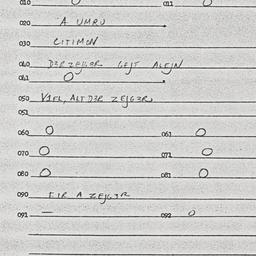 010 0 011 0
020 A UMRU
030 CITIMON
040 DER ZEJGER GEJT ALEJN
041 0
050 VIFL, ALT DER ZEJGER
051
060 0 061 0
070 0 071 0
080 0 081 0
090 FIR A ZEJGER
091 — 092 0